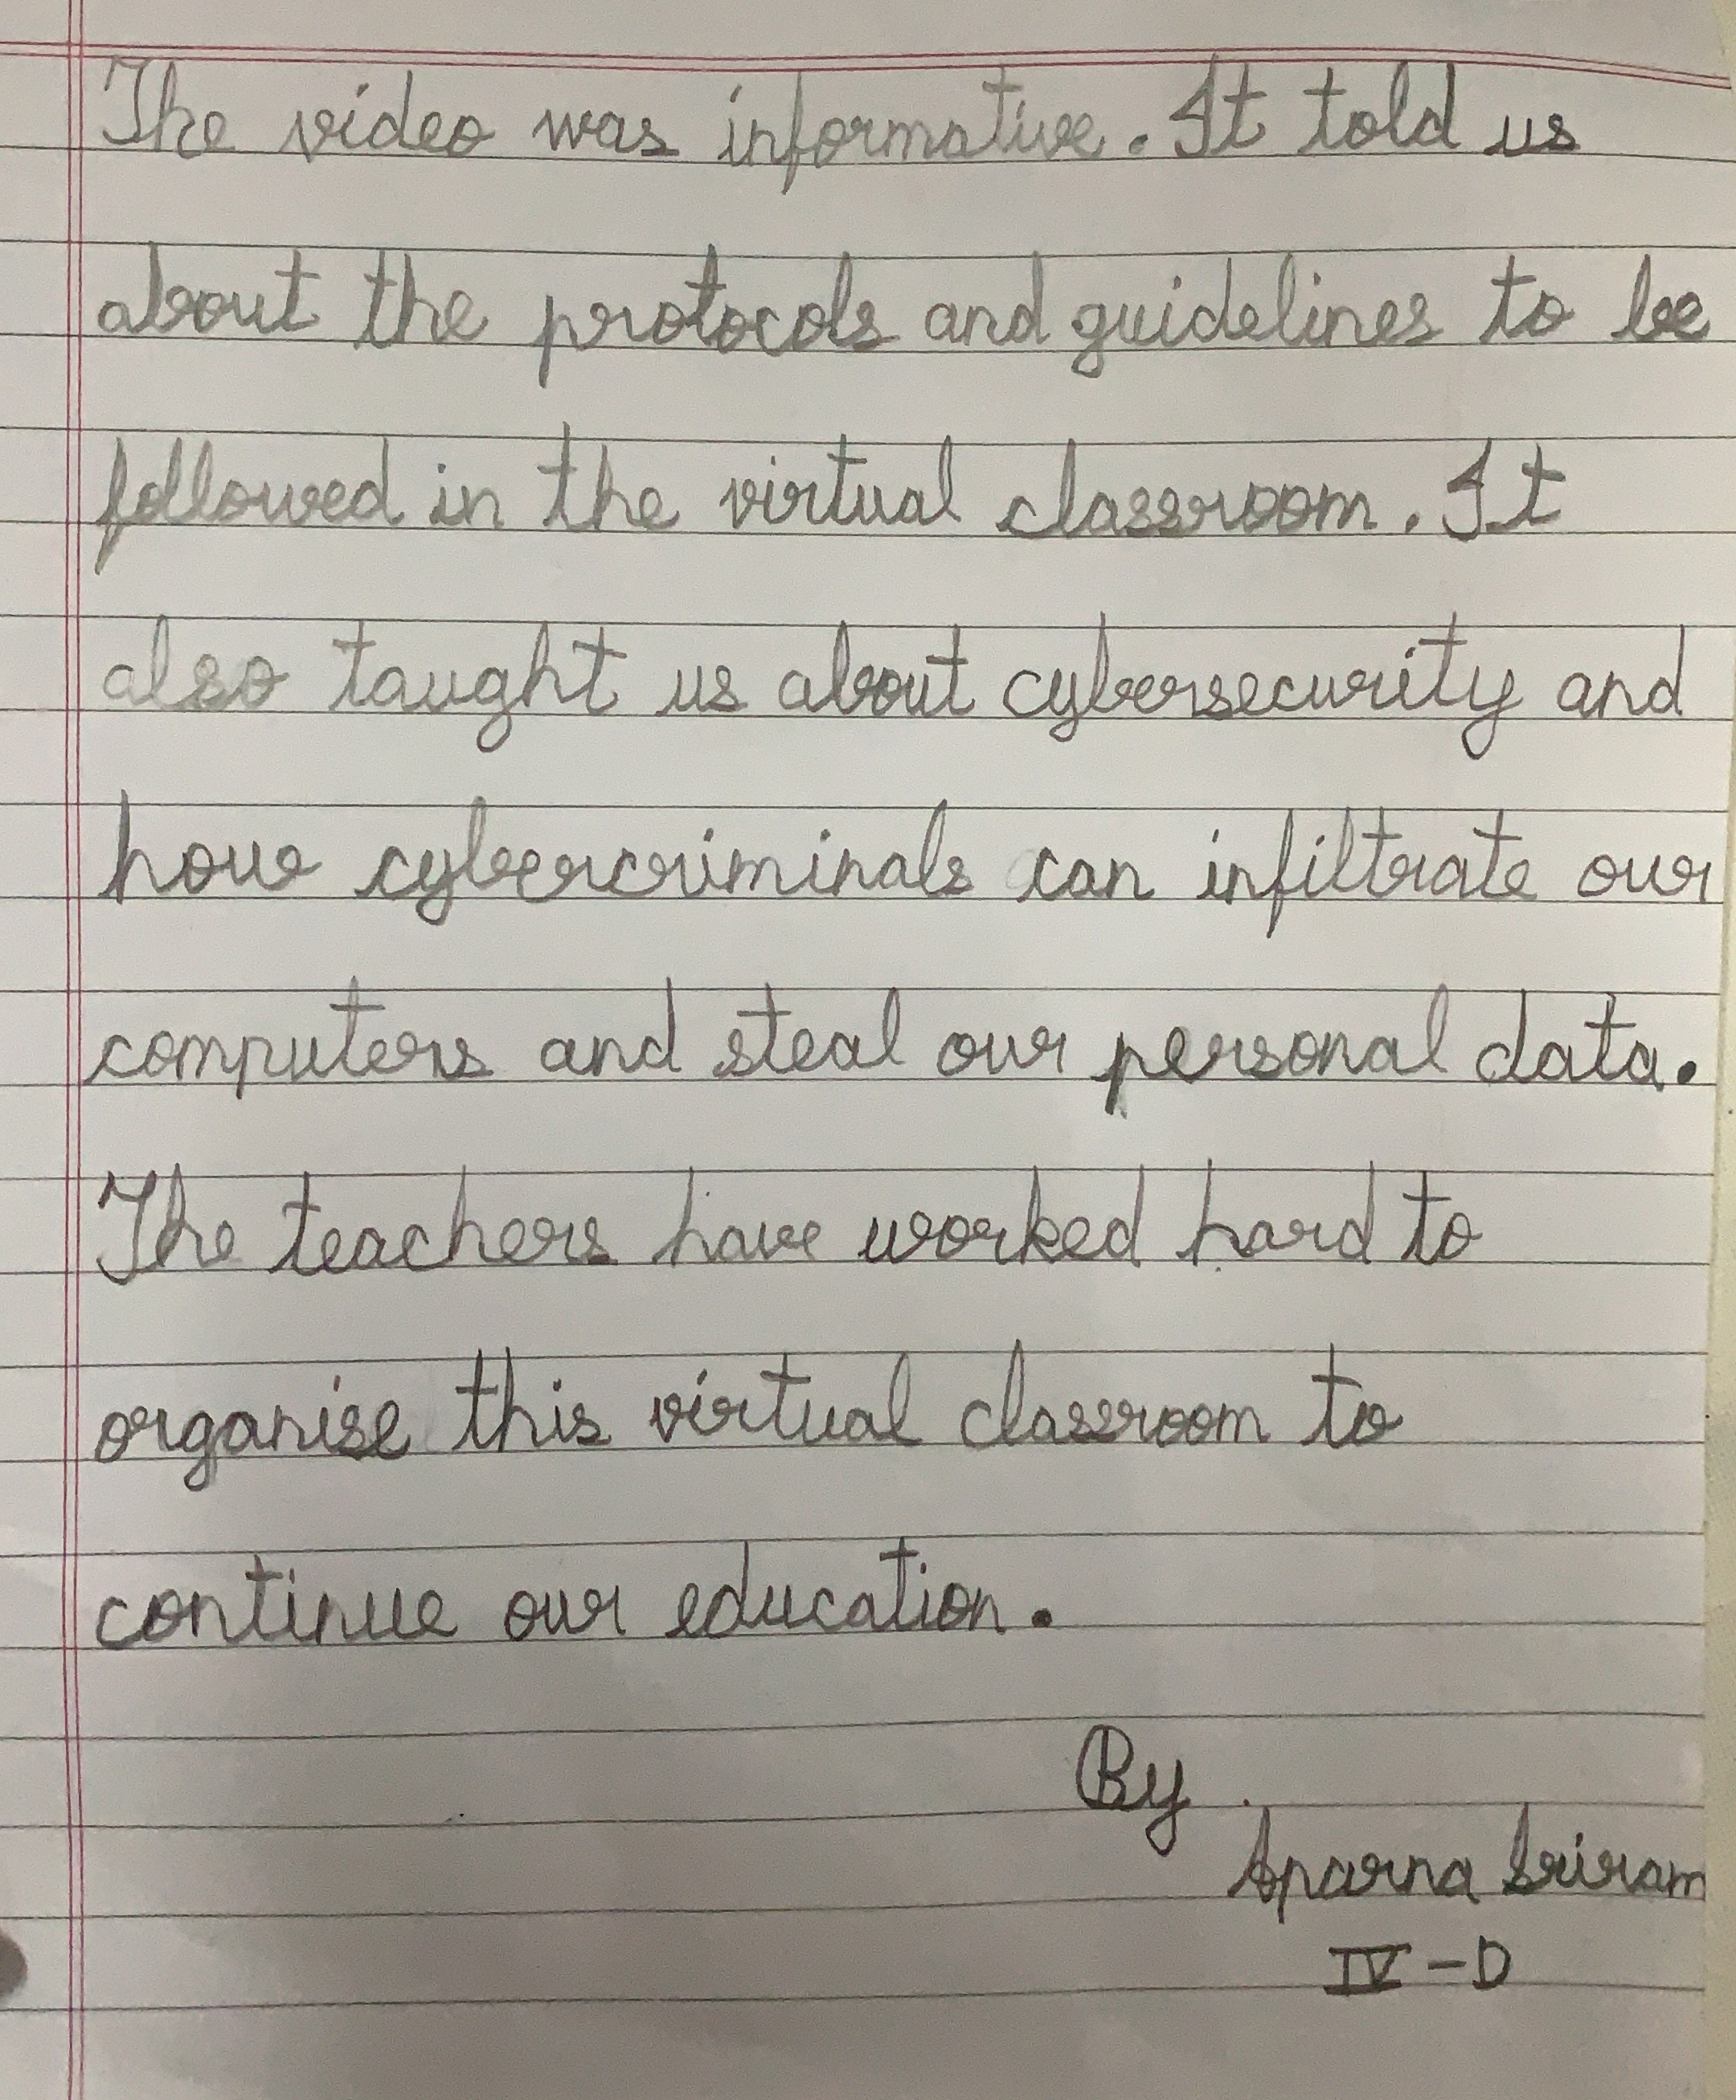 The video was informative. It told us
about the protocols and guidelines to be
followed in the virtual classroom. It
also taught us about cybersecurity and
how cybercriminals can infiltrate our
computers and steal our personal data.
The teachers have worked hard to
organise this virtual classroom to
continue our education.
By
Aparna Sriram
IV - D